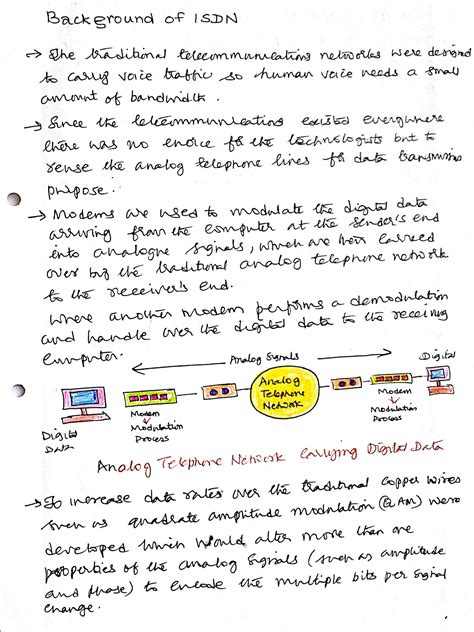 Background of ISDN
→ The traditional telecommunications networks were designed
to carry voice traffic so human voice needs a small
amount of bandwidth.
→ Since the telecommunications existed everywhere
there was no choice for the technologists but to
reuse the analog telephone lines for data transmission
purpose.
→ Modems are used to modulate the digital data
arriving from the computer at the sender's end
into analogue signals, which are then carried
over by the traditional analog telephone network
to the receiver's end.
Where another modem performs a demodulation
and handle over the digital data to the receiving
computer.
Analog Signals
Digital
Analog
Telephone
Network
Modem
Modulation
Process
Modem
Modulation
Process
Digital
Data
Analog Telephone Network Carrying Digital Data
→ To increase data rates over the traditional copper wires
such as quadrate amplitude modulation (QAM) were
developed which would alter more than one
properties of the analog signals (such as amplitude
and phase) to encode the multiple bits per signal
change.